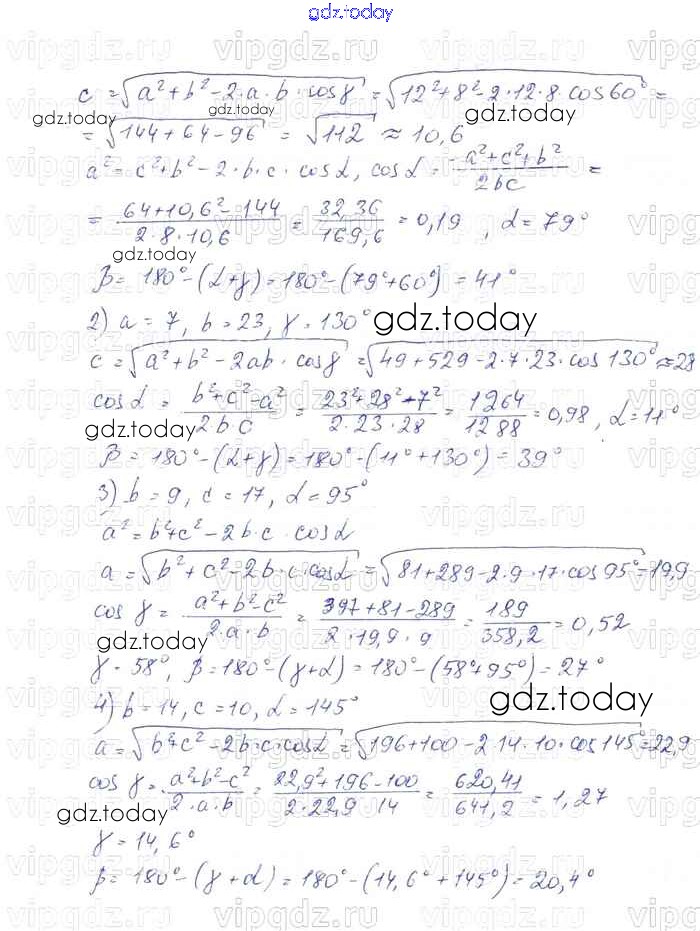 gdz.today
c = √(a² + b² - 2·a·b·cosγ) = √(12² + 8² - 2·12·8·cos60°) =
= √(144 + 64 - 96) = √112 ≈ 10,6
a² = c² + b² - 2·b·c·cosα, cosα = (-a² + c² + b²)/(2bc) =
= (64 + 10,6² - 144)/(2·8·10,6) = 32,36/169,6 = 0,19, α = 79°
β = 180° - (α + γ) = 180° - (79° + 60°) = 41°
2) a = 7, b = 23, γ = 130°
c = √(a² + b² - 2ab·cosγ) = √(49 + 529 - 2·7·23·cos130°) ≈ 28
cosα = (b² + c² - a²)/(2b·c) = (23² + 28² - 7²)/(2·23·28) = 1264/1288 = 0,98, α = 11°
β = 180° - (α + γ) = 180° - (11° + 130°) = 39°
3) b = 9, c = 17, α = 95°
a² = b² + c² - 2b·c·cosα
a = √(b² + c² - 2b·c·cosα) = √(81 + 289 - 2·9·17·cos95°) = 19,9
cosγ = (a² + b² - c²)/(2·a·b) = (397 + 81 - 289)/(2·19,9·9) = 189/358,2 = 0,52
γ = 58°, β = 180° - (γ + α) = 180° - (58° + 95°) = 27°
4) b = 14, c = 10, α = 145°
a = √(b² + c² - 2b·c·cosα) = √(196 + 100 - 2·14·10·cos145°) = 22,9
cosγ = (a² + b² - c²)/(2·a·b) = (22,9² + 196 - 100)/(2·22,9·14) = 620,41/641,2 = 1,27
γ = 14,6°
β = 180° - (γ + α) = 180° - (14,6° + 145°) = 20,4°